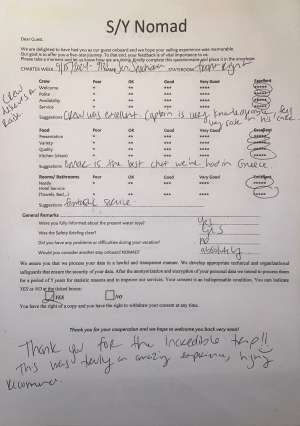 S/Y Nomad
Dear Guest,
We are delighted to have had you as our guest onboard and we hope your sailing experience was memorable.
Our goal is to offer you a five-star journey. To that end, your feedback is of vital importance to us.
Please take a moment and let us know how we are doing. Kindly complete this questionnaire and place it in the envelope.
CHARTER WEEK NAME STATEROOM front right
CREW
RAISE
Crew Poor OK Good Very Good Excellent
Welcome * ** *** **** *****
Polite * ** *** **** *****
Availability * ** *** **** *****
Service * ** *** **** *****
Suggestions Crew was excellent. Captain is very knowledgeable, felt
very safe in his care.
Food Poor OK Good Very Good Excellent
Presentation * ** *** **** *****
Variety * ** *** **** *****
Quality * ** *** **** *****
Kitchen (clean) * ** *** **** *****
Suggestions is the best chef we've had in Greece
Rooms/ Bathrooms Poor OK Good Very Good Excellent
Neatly * ** *** **** *****
Hotel Service
(Towels, Bed...) * ** *** **** *****
Suggestions fantastic service
General Remarks
Were you fully informed about the present water toys? Yes
Was the Safety Briefing clear? Yes
Did you have any problems or difficulties during your vacation? no
Would you consider another trip onboard NOMAD? absolutely
We assure you that we process your data in a lawful and transparent manner. We develop appropriate technical and organizational
safeguards that ensure the security of your data. After the anonymization and encryption of your personal data we intend to process them
for a period of 5 years for statistic reasons and to improve our services. Your consent is an indispensable condition. You can indicate
YES or NO at the ticked boxes:
YES NO
You have the right of a copy and you have the right to withdraw your consent at any time.
Thank you for your cooperation and we hope to welcome you back very soon!
Thank you for the incredible trip!!
This was truly an amazing experience, highly
recommend